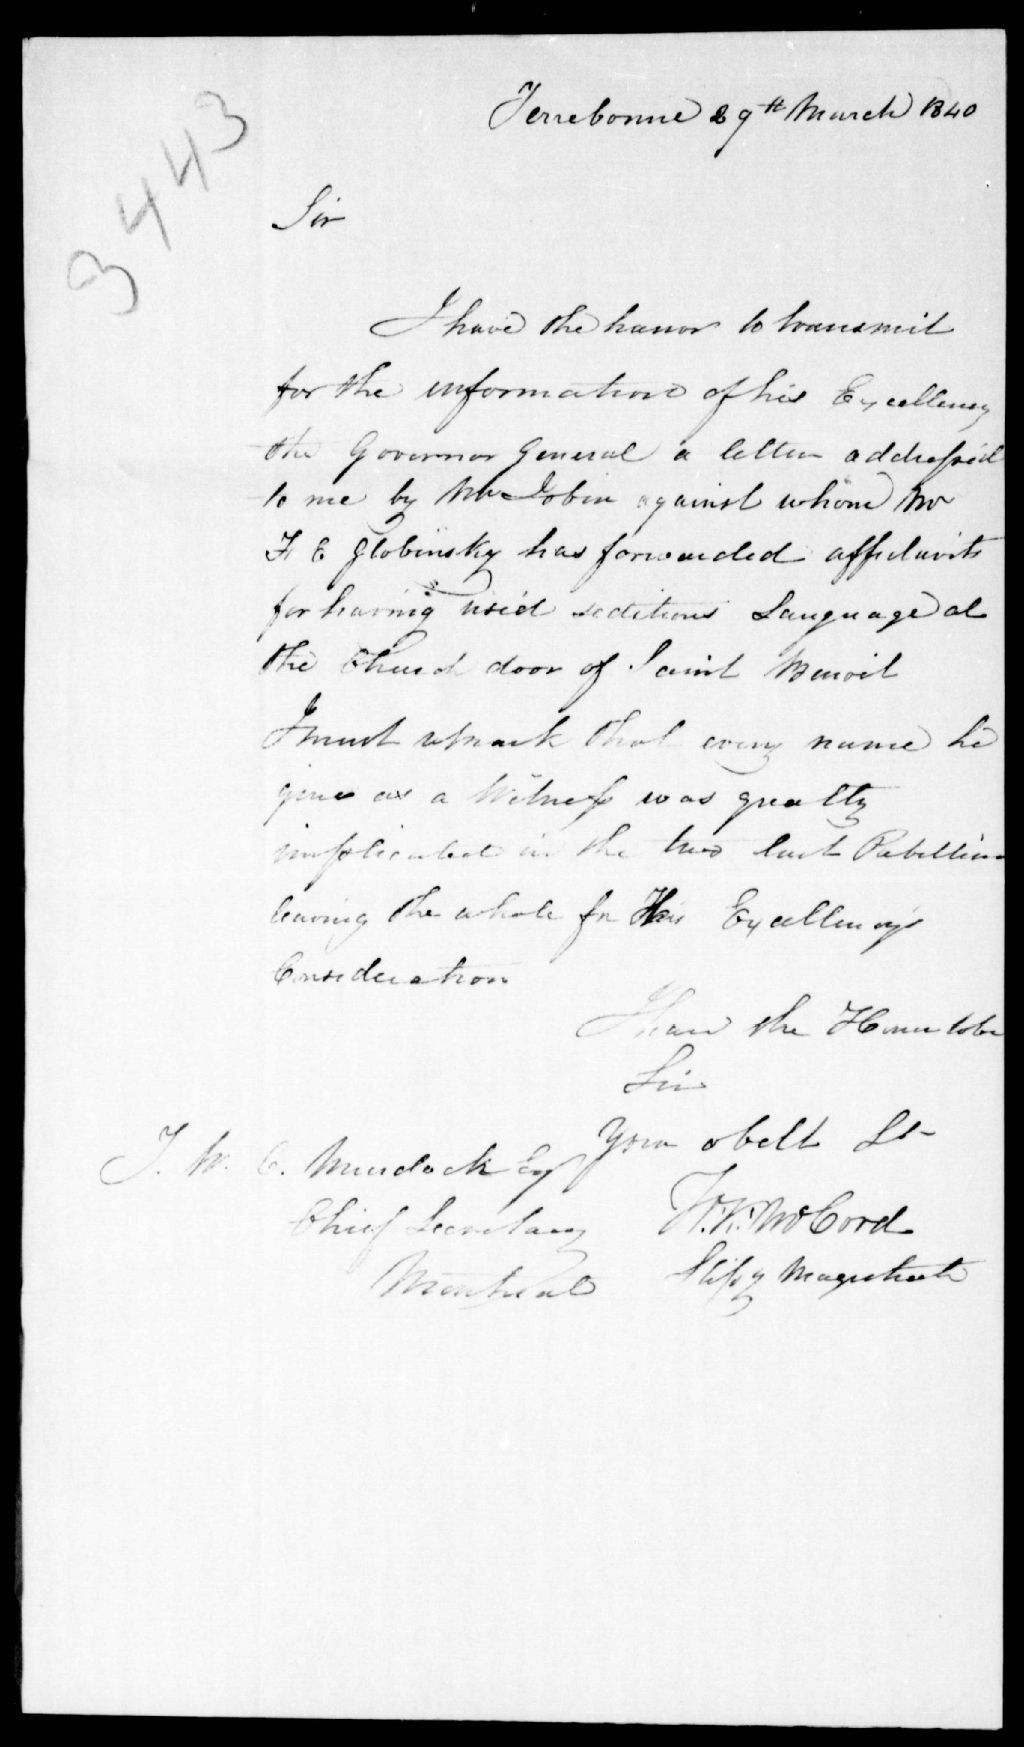 3443
Terrebonne 29th March 1840
Sir
I have the honor to transmit
for the information of his Excellency
the Governor General a letter addressed
to me by Mr Jobin against whom Mr
F E Globinsky has forwarded affidavits
for having used seditious Language at
the Church door of Saint Benoit
I must remark that every name he
gives as a Witness was greatly
implicated in the two last Rebellions
leaving the whole for His Excellency's
Consideration
I have the Honor to be
Sir
Your obdt St
T. W. C. Murdock Esq
Chief Secretary
W. K. McCord
Montreal
Stipy Magistrate